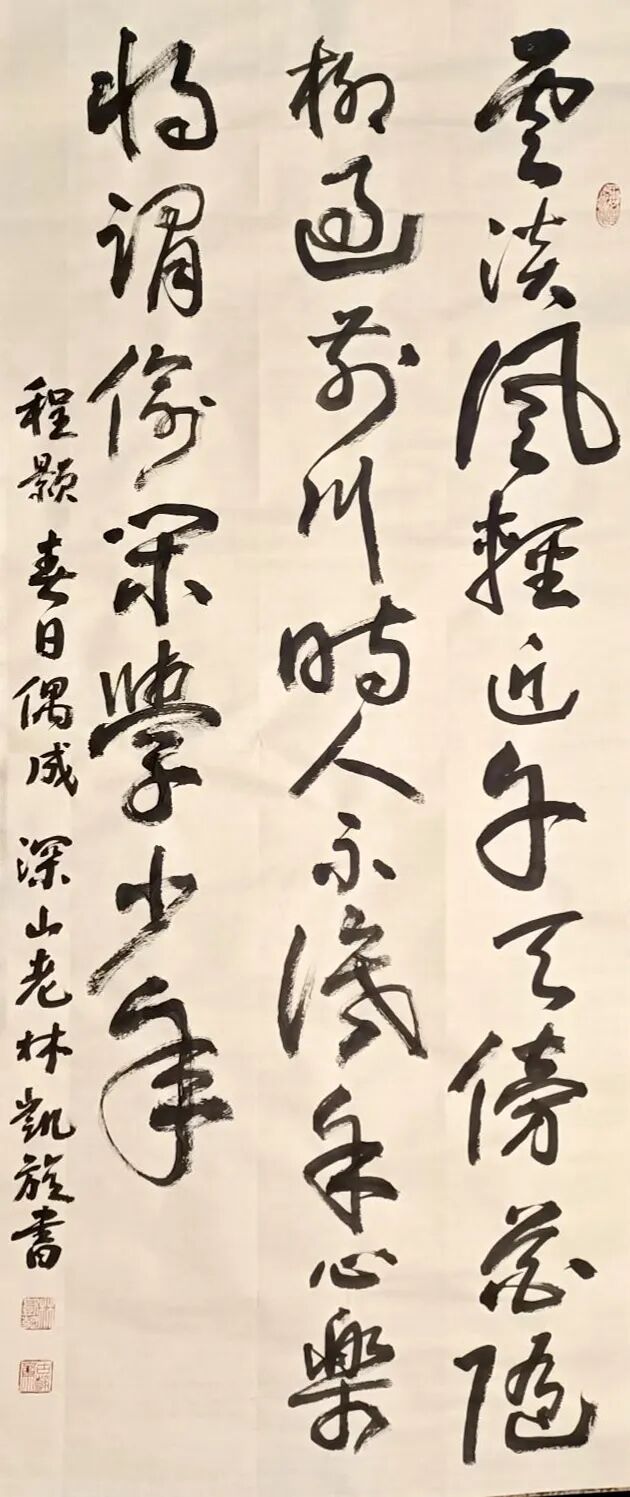 雲淡風輕近午天傍花隨
柳過前川時人不識余心樂
將謂偷閑學少年
程顥春日偶成 深山老林凱旋書